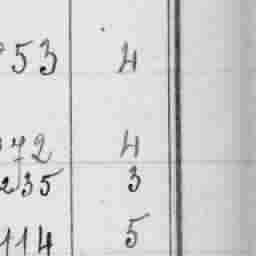 53 4
72 4
235 3
114 5